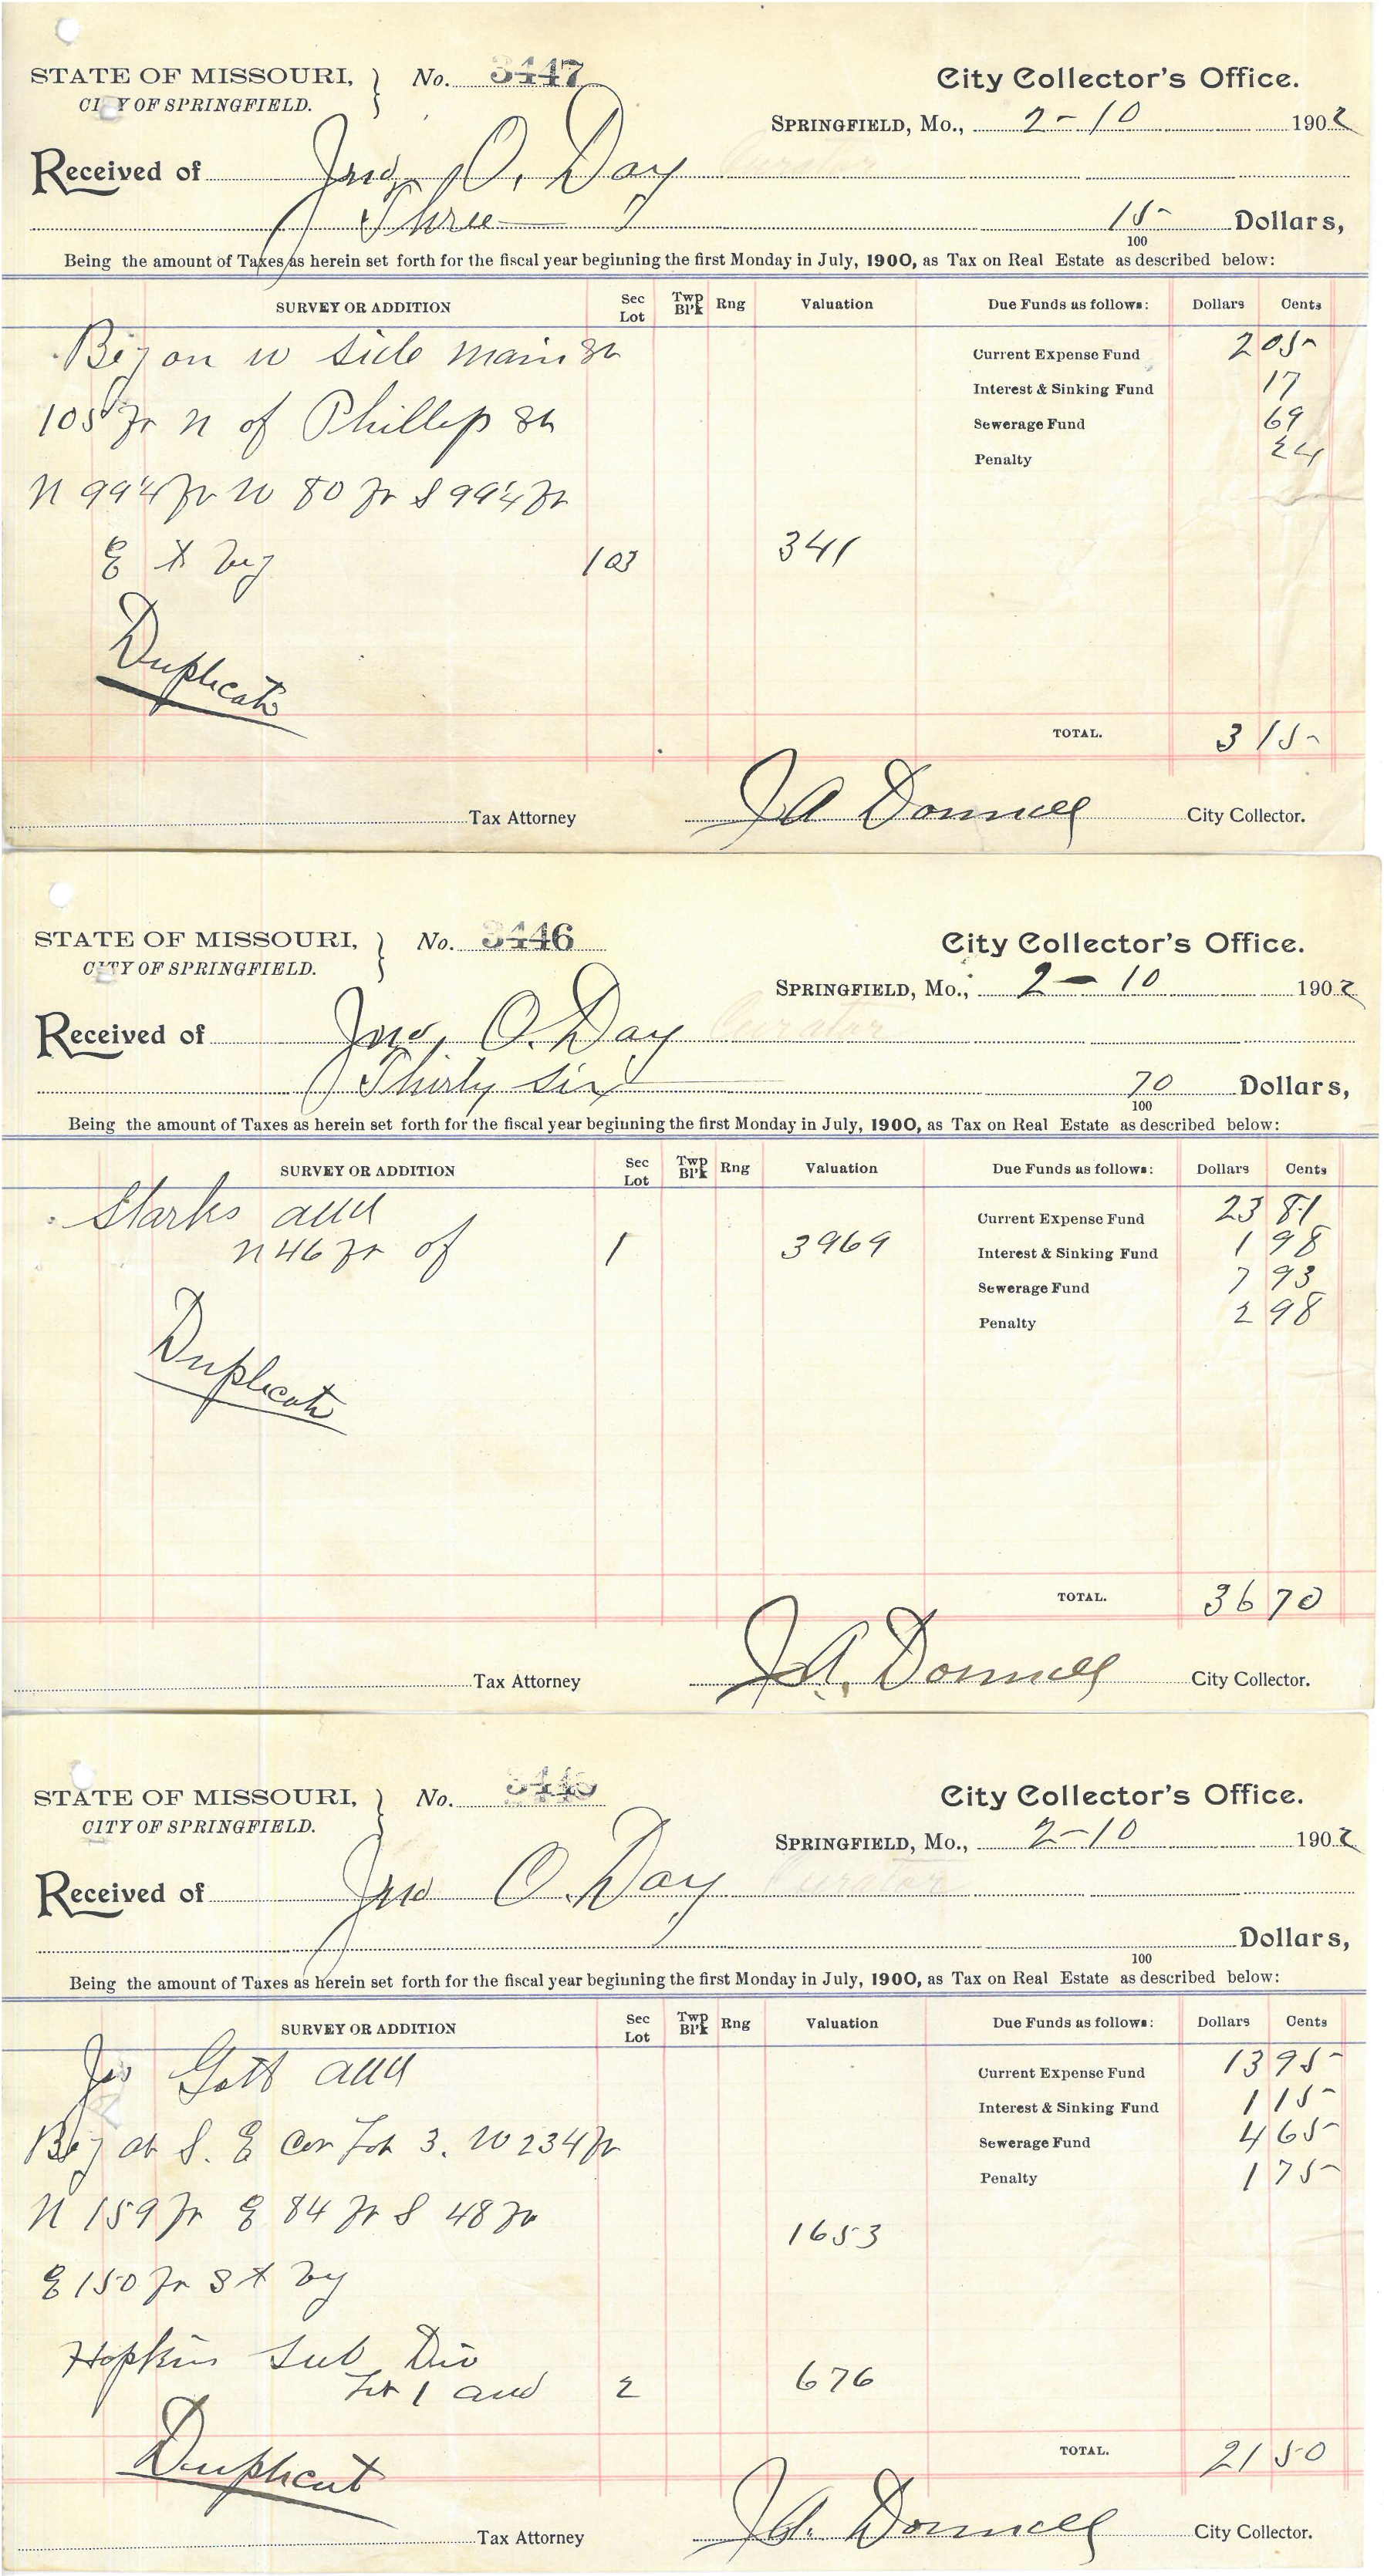 STATE OF MISSOURI, } No. 3447 City Collector's Office.
CITY OF SPRINGFIELD.
SPRINGFIELD, Mo., 2-10 1902
Received of Jno. O. Day Curator
Three 15 Dollars,
100
Being the amount of Taxes as herein set forth for the fiscal year beginning the first Monday in July, 1900, as Tax on Real Estate as described below:
SURVEY OR ADDITION Sec Lot Twp Bl'k Rng Valuation Due Funds as follows: Dollars Cents
Beg on W side Main St Current Expense Fund 2 05
Interest & Sinking Fund 17
105 ft N of Phillip St Sewerage Fund 69
Penalty 24
N 99¼ ft W 80 ft S 99¼ ft
E to beg 103 341
Duplicate
TOTAL. 3 15
Tax Attorney J A Donnell City Collector.
STATE OF MISSOURI, } No. 3446 City Collector's Office.
CITY OF SPRINGFIELD.
SPRINGFIELD, Mo., 2-10 1902
Received of Jno, O. Day Curator
Thirty Six 70 Dollars,
100
Being the amount of Taxes as herein set forth for the fiscal year beginning the first Monday in July, 1900, as Tax on Real Estate as described below:
SURVEY OR ADDITION Sec Lot Twp Bl'k Rng Valuation Due Funds as follows: Dollars Cents
Starks add Current Expense Fund 23 81
N 46 ft of 1 3969 Interest & Sinking Fund 1 98
Sewerage Fund 7 93
Penalty 2 98
Duplicate
TOTAL. 36 70
Tax Attorney J.A. Donnell City Collector.
STATE OF MISSOURI, } No. 3445 City Collector's Office.
CITY OF SPRINGFIELD.
SPRINGFIELD, Mo., 2-10 1902
Received of Jno O. Day Curator
Dollars,
100
Being the amount of Taxes as herein set forth for the fiscal year beginning the first Monday in July, 1900, as Tax on Real Estate as described below:
SURVEY OR ADDITION Sec Lot Twp Bl'k Rng Valuation Due Funds as follows: Dollars Cents
Gott add Current Expense Fund 13 95
Interest & Sinking Fund 1 15
Beg at S. E Cor Lot 3. W 234 ft Sewerage Fund 4 65
Penalty 1 75
N 159 ft E 84 ft S 48 ft 1653
E 150 ft S to beg
Hopkins Sub Div
Lot 1 and 2 676
Duplicat
TOTAL. 21 50
Tax Attorney J.A. Donnell City Collector.